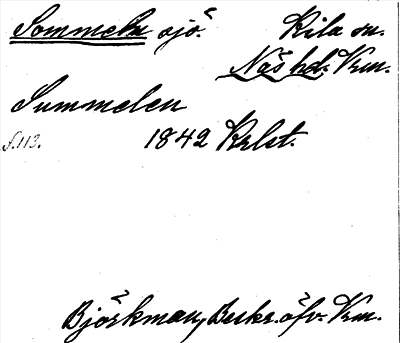 Sommeln sjö. Kila sn.
Näs hd. Vrm.
Summelen
s. 113. 1842 Krlst.
Björkman, Beskr. öfv. Vrm.